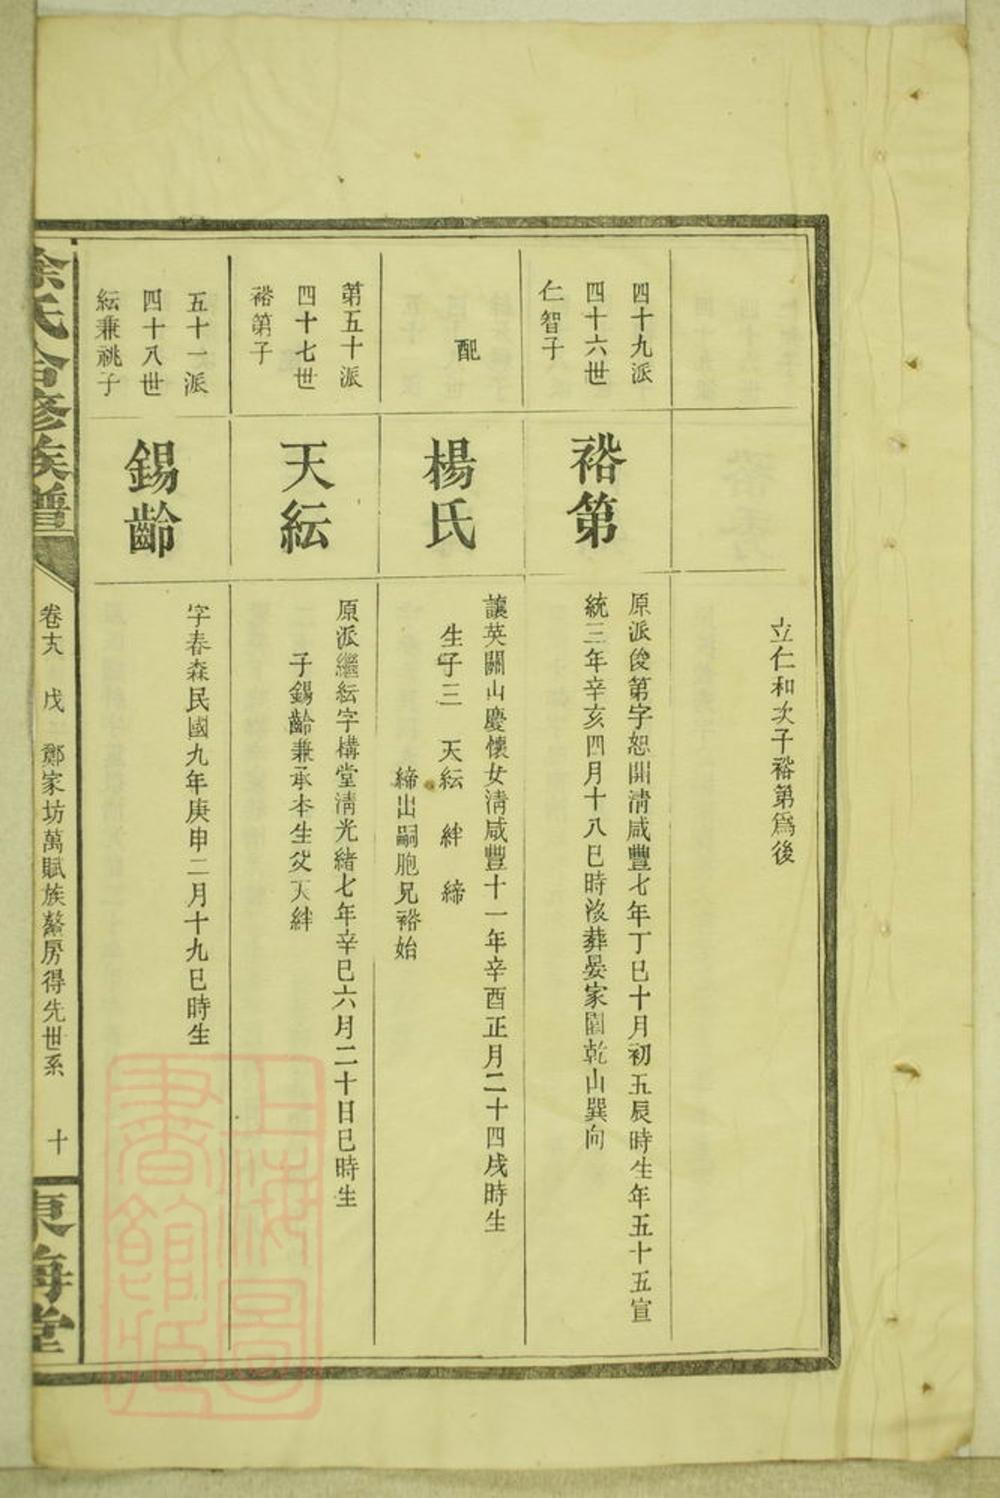 立仁和次子裕第爲後
四十九派
四十六世
仁智子
裕第
原派俊第字恕開淸咸豐七年丁巳十月初五辰時生年五十五宣
統三年辛亥四月十八巳時沒葬晏家園乾山巽向
配
楊氏
讓英關山慶懷女淸咸豐十一年辛酉正月二十四戌時生
生子三 天紜 絆 締
締出嗣胞兄裕始
第五十派
四十七世
裕第子
天紜
原派繼紜字構堂淸光緒七年辛巳六月二十日巳時生
子錫齡兼承本生父天絆
五十一派
四十八世
紜兼祧子
錫齡
字春森民國九年庚申二月十九巳時生
徐氏合修族譜
卷十九 戊 鄭家坊萬賦族鰲房得先世系 十
東海堂
上海圖書館藏